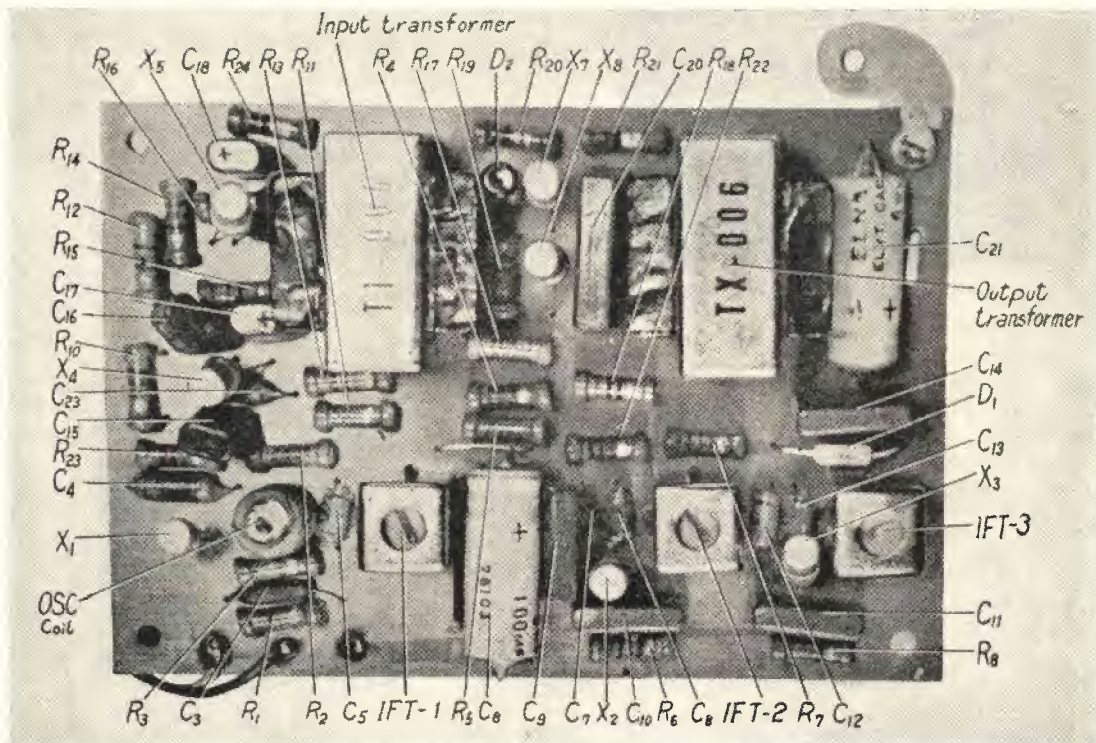 Input transformer
R16 X5 C18 R24 R13 R11 R4 R17 R19 D2 R20 X7 X8 R21 C20 R18 R22
R14
R12
R15
C17
C16
R10
X4
C23
C15
R23
C4
X1
OSC
Coil
+
+
TX-006
ELNA
ELECT. CAP.
+
C21
Output
transformer
C14
D1
C13
X3
IFT-3
C11
R8
+
R3 C3 R1 R2 C5 IFT-1 R5 C8 C9 C7 X2 C10 R6 C8 IFT-2 R7 C12